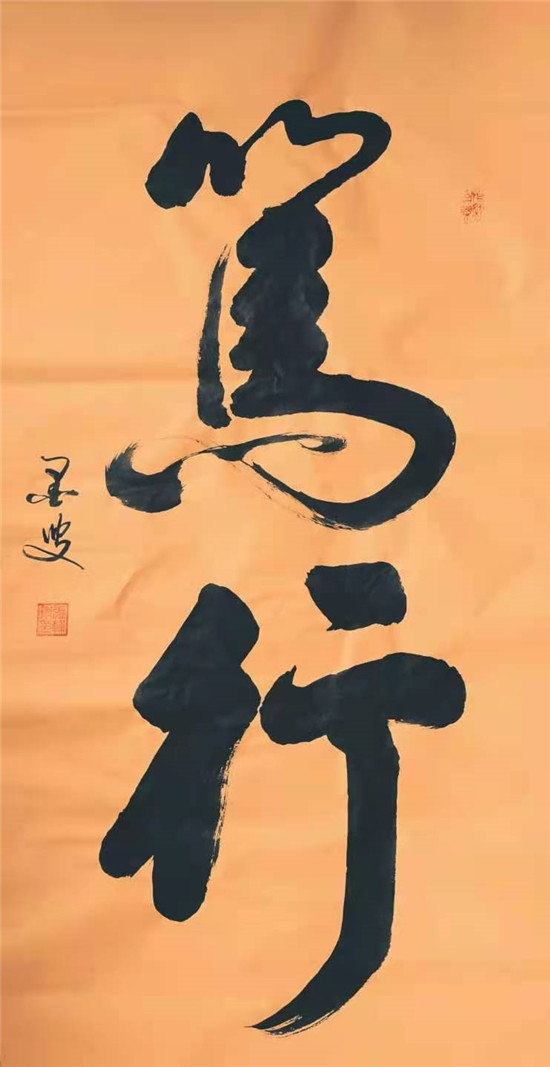 篤行
墨叟